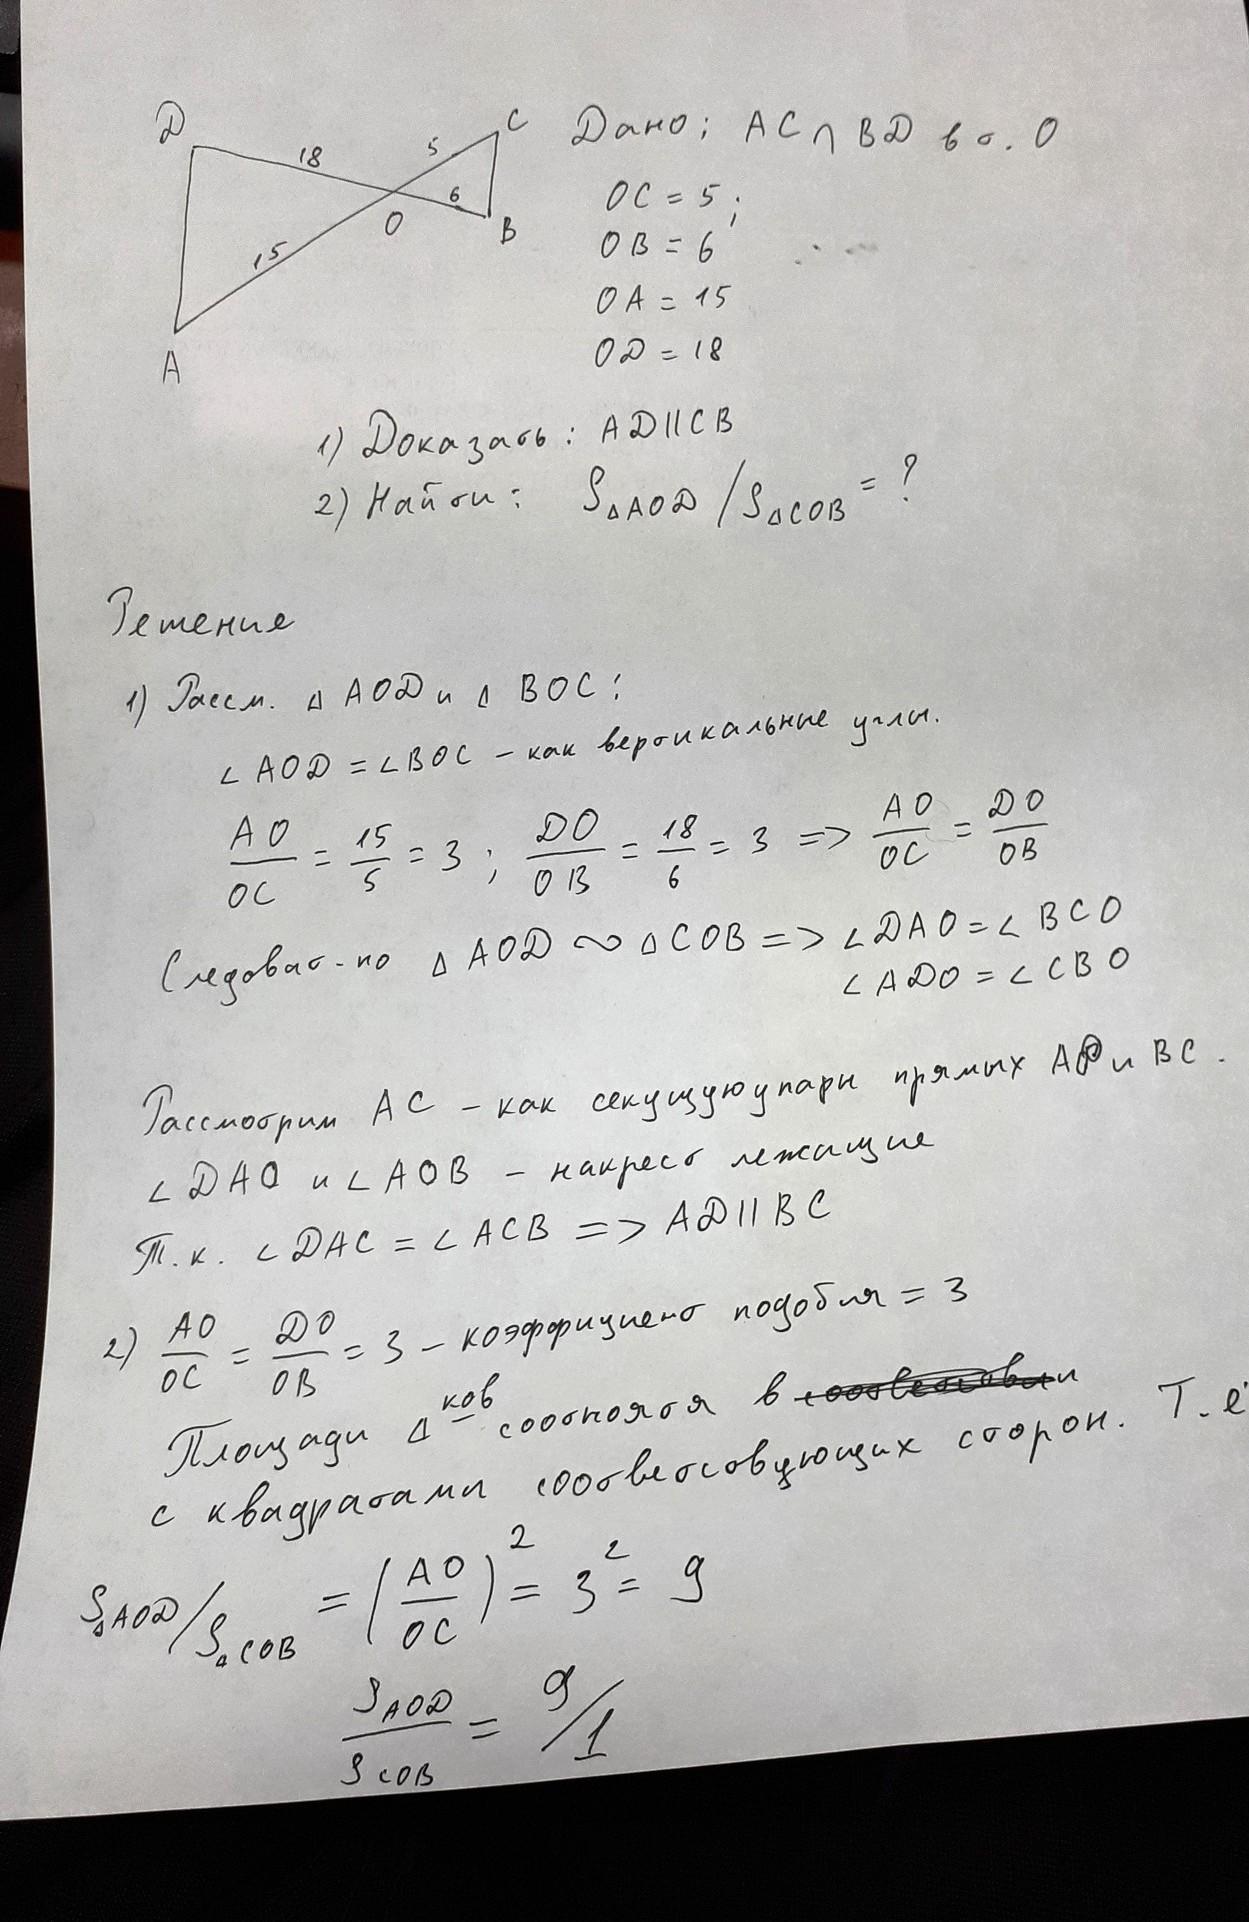 D
18
5
C
6
O
B
15
A
Дано; AC ∩ BD в т. O
OC = 5;
OB = 6
OA = 15
OD = 18
1) Доказать: AD||CB
2) Найти: S△AOD / S△COB = ?
Решение
1) Рассм. △ AOD и △ BOC:
∠ AOD = ∠BOC – как вертикальные углы.
AO/OC = 15/5 = 3 ; DO/OB = 18/6 = 3 => AO/OC = DO/OB
Следоват-но △ AOD ∾ △ COB => ∠ DAO = ∠ BCO
∠ ADO = ∠ CBO
Рассмотрим AC – как секущую у пары прямых AD и BC.
∠ DAO и ∠ AOB – накрест лежащие
Т.к. ∠ DAC = ∠ ACB => AD||BC
2) AO/OC = DO/OB = 3 – коэффициент подобия = 3
Площади △ ков соотнотя в
с квадратами соответсвующих сторон. Т.ё
S△AOD/S△COB = (AO/OC)² = 3² = 9
SAOD/SCOB = 9/1